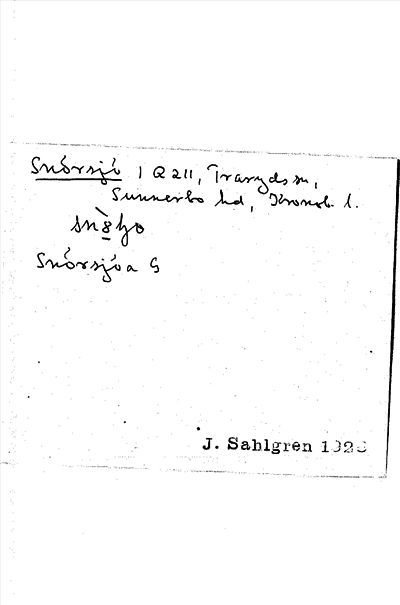 Snörsjö 1 Q 211, Traryds sn,
Sunnerbo hd, Kronob. l.
Snörsjöa G
J. Sahlgren 192